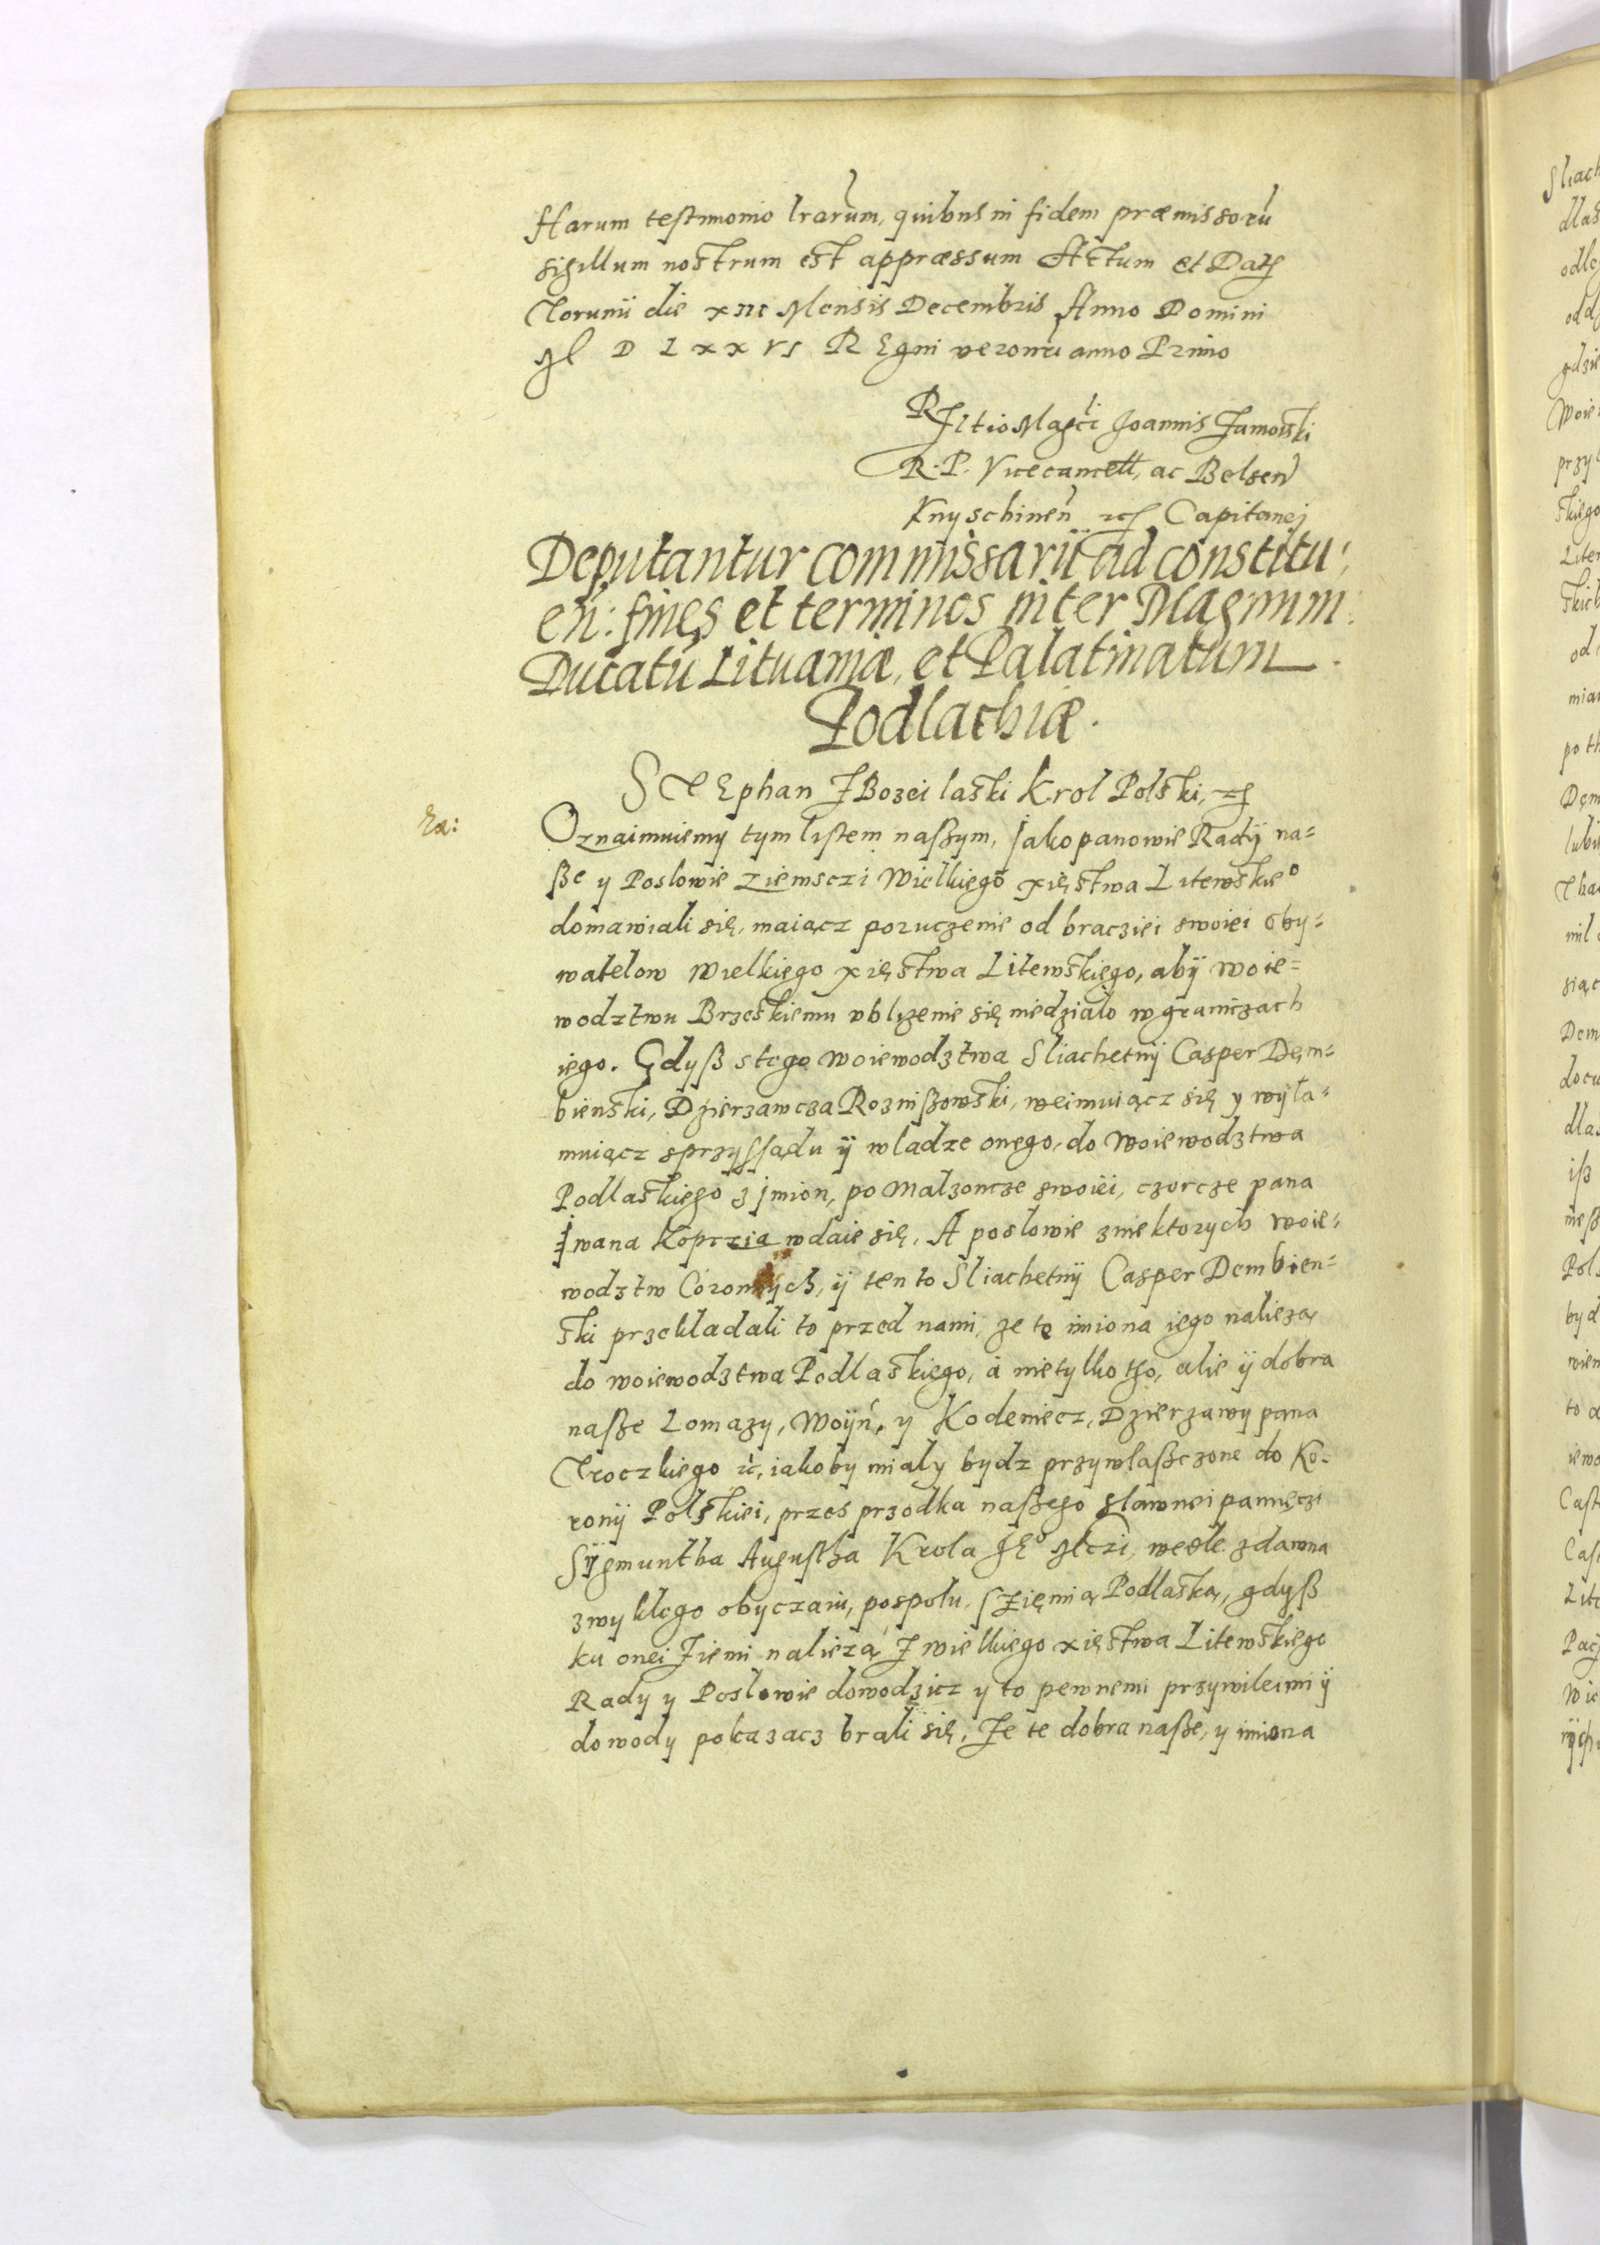 Harum testimonio lrarum, quibus in fidem præmissorũ
sigillum nostrum est appræssum Actum et Datz
Torunii die XIII Mensis Decembris Anno Domini
M D L X X V I REgni vero nri anno Primo
Rltio Magci Joannis Zamoiski
R. P. Vicecancell, ac Belsen
Knyschinen̄ etc Capitanej
Deputantur commissarii ad constitu:
en̄: fines et terminos inter Magnum
Ducatũ Lituaniæ, et Palatinatum
Podlachiæ.
STEphan Z Bozei laski Krol Polski, etc
Ra:
Oznaimuiemy tym listem naszym, jako panowie Radÿ na=
sze y Poslowie ziemsczi Wielkiego xięstwa Litewskieo
domawiali się, maiącz poruczenie od bracziei swoiei oby=
watelow wielkiego xięstwa Litewskiego, abÿ woie=
wodztwu Brzeskiemu vblizenie się niedzialo w graniczach
iego. Gdysz s tego woiewodztwa Sliachetnÿ Casper Dem=
bienski, Dzierzawcza Rozniszowski, weimuiącz się y wyła=
muiącz sprzyssądu ÿ wladze onego, do woiewodztwa
Podlaskiego z jmion, po malzoncze swoiei, czorcze pana
Jwana Kopczia wdaie się, A poslowie z niektorych woie=
wodztw Coronnÿch, ÿ ten to Sliachetnÿ Casper Dembien=
ski przekladali to przed nami, ze te imiona iego nalieza
do woiewodztwa Podlaskiego, a nie tylko tho, alie ÿ dobra
nasze Lomazy, Woÿn, y Kodeniecz, Dzierzawy pana
Troczkiego etc, iakoby mialy bydz przywlaszczone do Ko=
ronÿ Polskiei, przes przodka naszego slawnei pamięczi
Sÿgmuntha Augustha Krola JEo Mczi, wedle zdawna
zwyklego obyczaiu, pospolu, s Ziemią Podlaską, gdysz
ku onei Ziemi należą Z wielkiego xięstwa Litewskiego
Rady y Poslowie dowodzicz y to pewnemi przywileimi ÿ
dowody pokazacz brali się, Ze te dobra nasze, y imiona